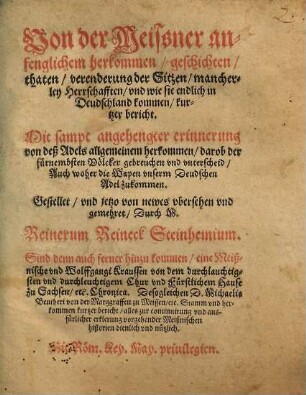 Von der Meissner an-
fenglichem herkommen / geschichten /
thaten / verenderung der Sitzen / mancher-
ley Herrschafften / vnd wie sie endlich in
Deudschland kommen / kur-
tzer bericht.
Mit sampt angehengter erinnerung
von deß Adels allgemeinem herkommen / darob der
fürnembsten Völcker gebreuchen vnd vnterscheid /
Auch woher die Wapen vnserm Deudschen
Adel zukommen.
Gestellet / vnd jetzo von newes vbersehen vnd
gemehret / Durch M.
Reinerum Reineck Steinhemium.
Sind denn auch ferner hinzu kommen / eine Meiß-
nische vnd Wolffgangi Kraussen von dem durchlauchtig-
sten vnd durchleuchtigem Chur vnd Fürstlichem Hause
zu Sachsen / etc. Chronica. Desgleichen D. Michaelis
Beutheri von den Marggraffen zu Meissen / etc. Stamm vnd her-
kommen kurtzer bericht / alles zur continuirung vnd aus-
fürlicher erklerung vorgehender Meißnischen
historien dienlich vnd nützlich.
Mit Röm. Key. May. priuilegien.